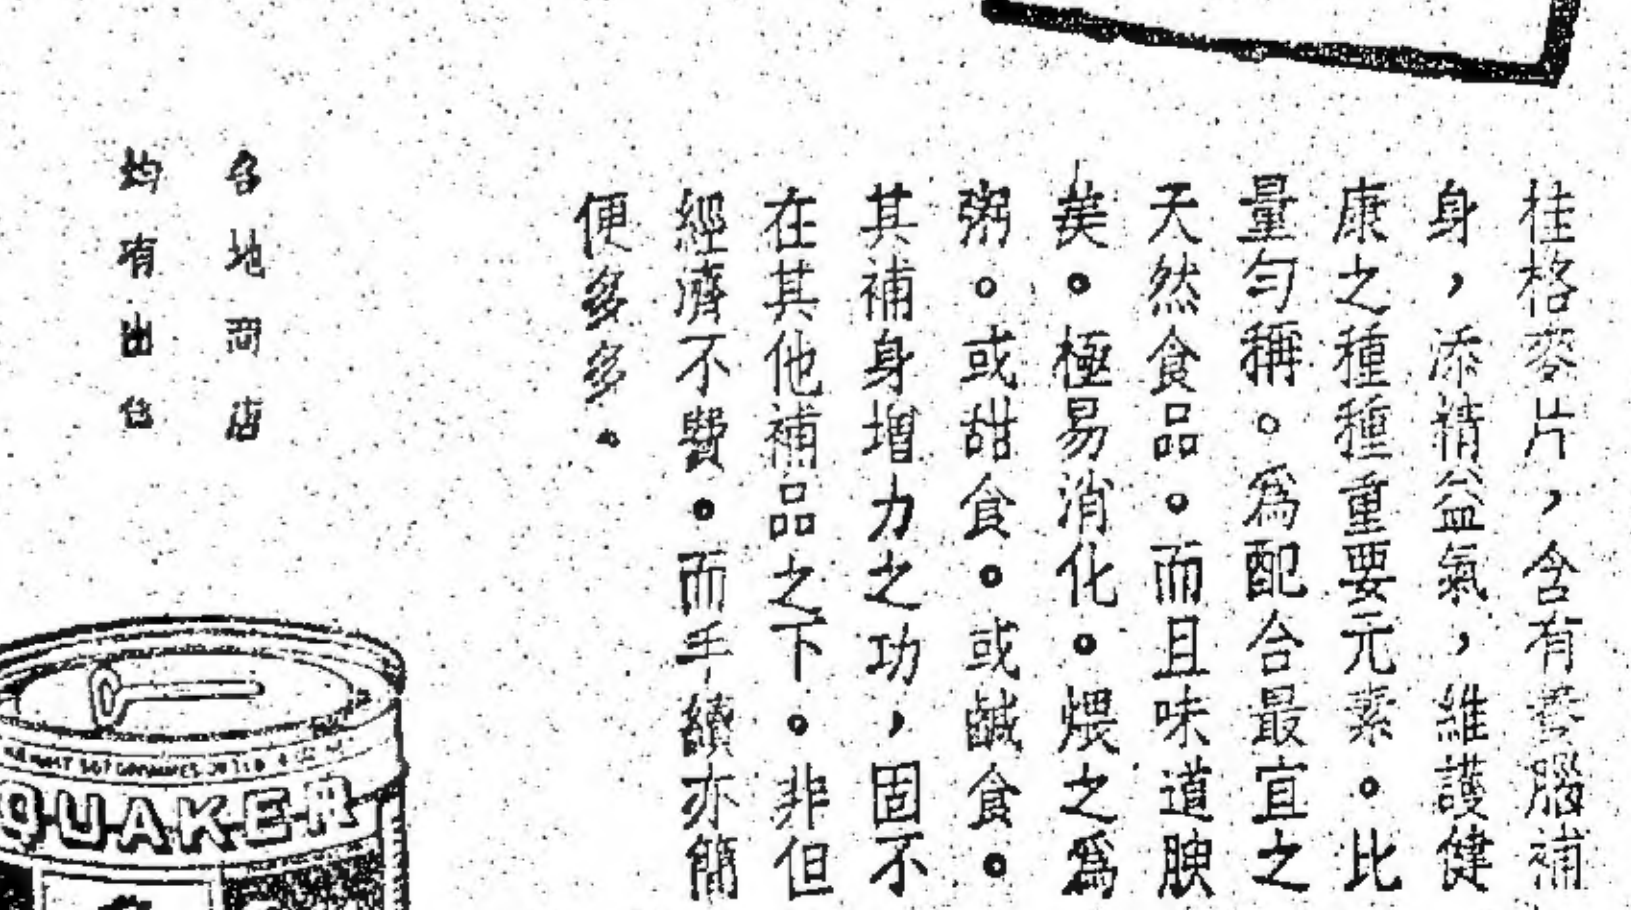 桂格麥片，含有養腦補
身，添精益氣，維護健
康之種種重要元素。比
量勻稱。爲配合最宜之
天然食品。而且味道腴
美。極易消化。煨之爲
粥。或甜食。或鹹食。
其補身增力之功，固不
在其他補品之下。非但
經濟不費。而手續亦簡
便多多。
各地商店
均有出售
QUAKER